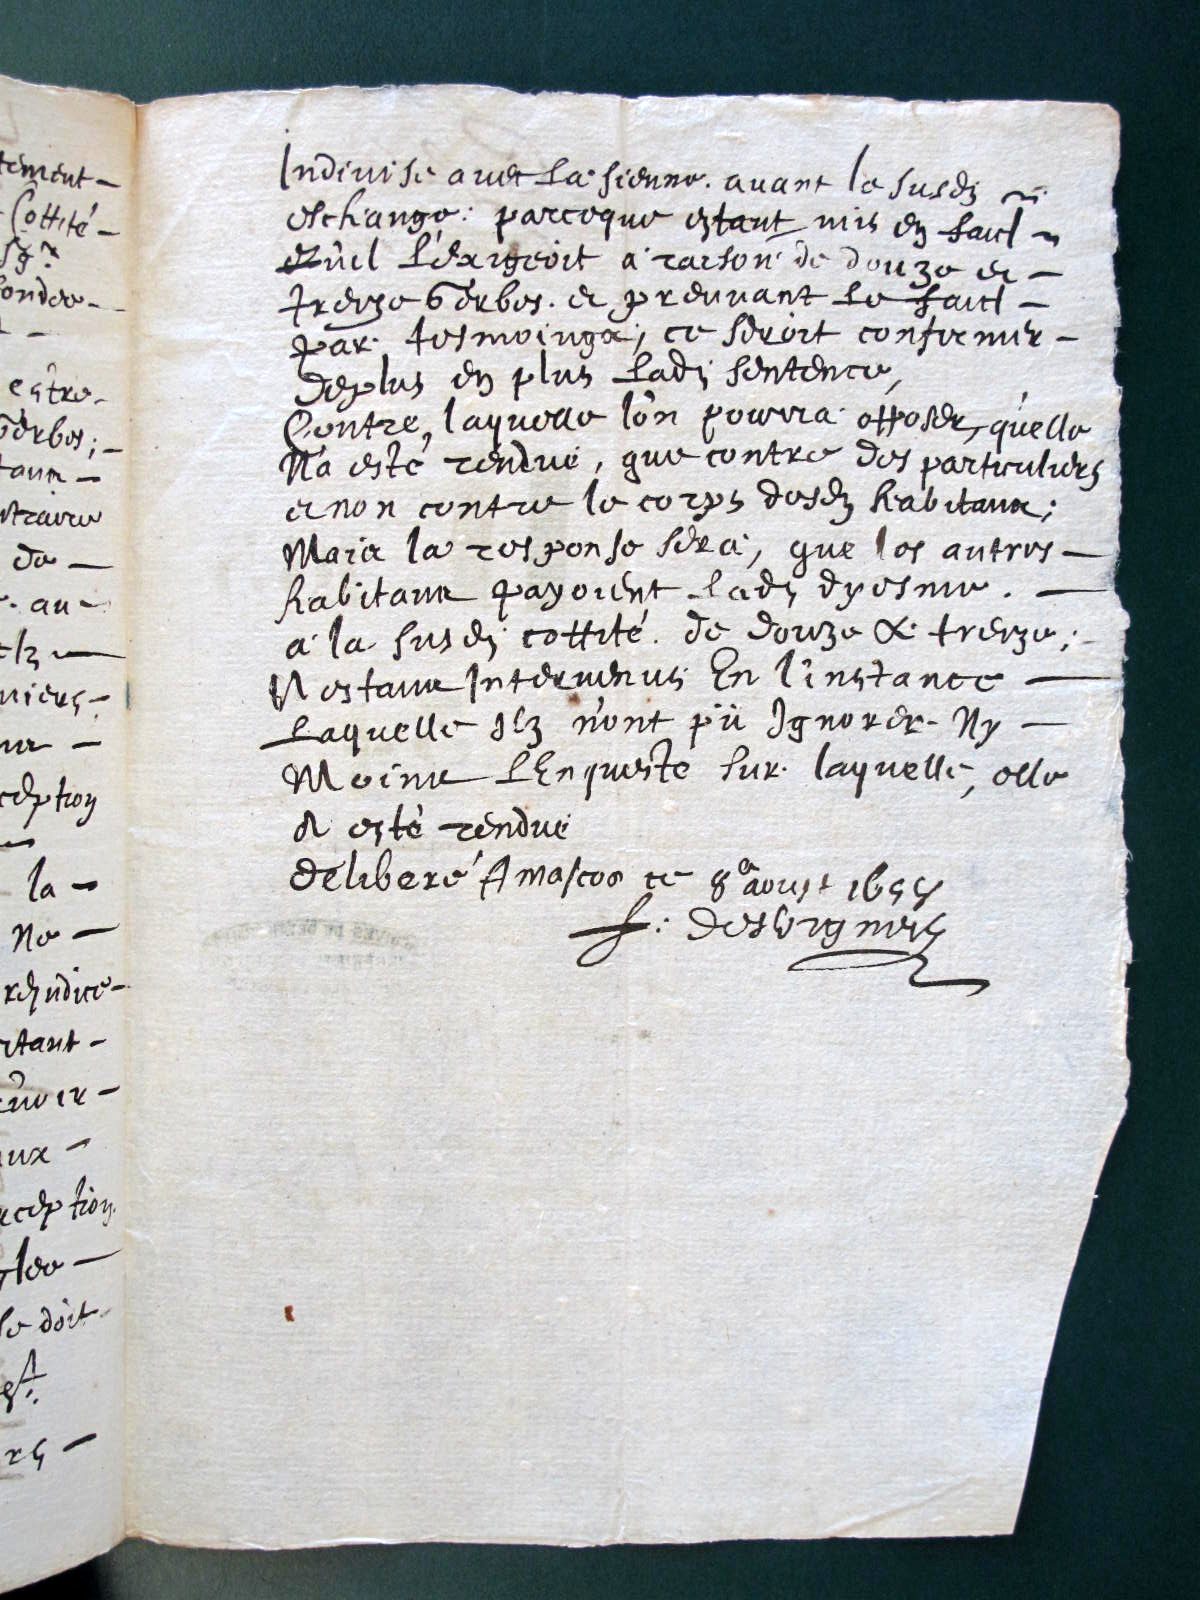 tement -
Cottité -
Sgr
fondee -
estre -
Gerbes; -
taux -
ntraire
de -
. au -
elz -
niers -
ception
la -
Ne -
reiudice -
rtant -
uoir -
aux -
xception
les -
se doit
rs -
Indiuise auec La sienne. auant le susdt
eschange: parceque estant mis en faict
Qu'il L'exigeoit a raison de douze et -
treize Gerbes. et prenuant Le faict -
par. tesmoings; ce seroit confirmer -
deplus en plus Ladt sentence,
Contre, laquelle lon pourra opposer, quelle
N'a esté rendue, que contre des particuliers
et non contre le corps desdt habitans;
Mais la response sera, que les autres -
habitans payoient Ladt dyesme. -
a la susdt cottité. de douze & treize; -
N estans Interuenus En l'instance -
Laquelle Ilz n'ont pü Ignorer. Ny -
Moins L'Enqueste sur. laquelle, elle
A esté rendue
deliberé A mascon ce 8e aoust 1655
f: deslorgnes